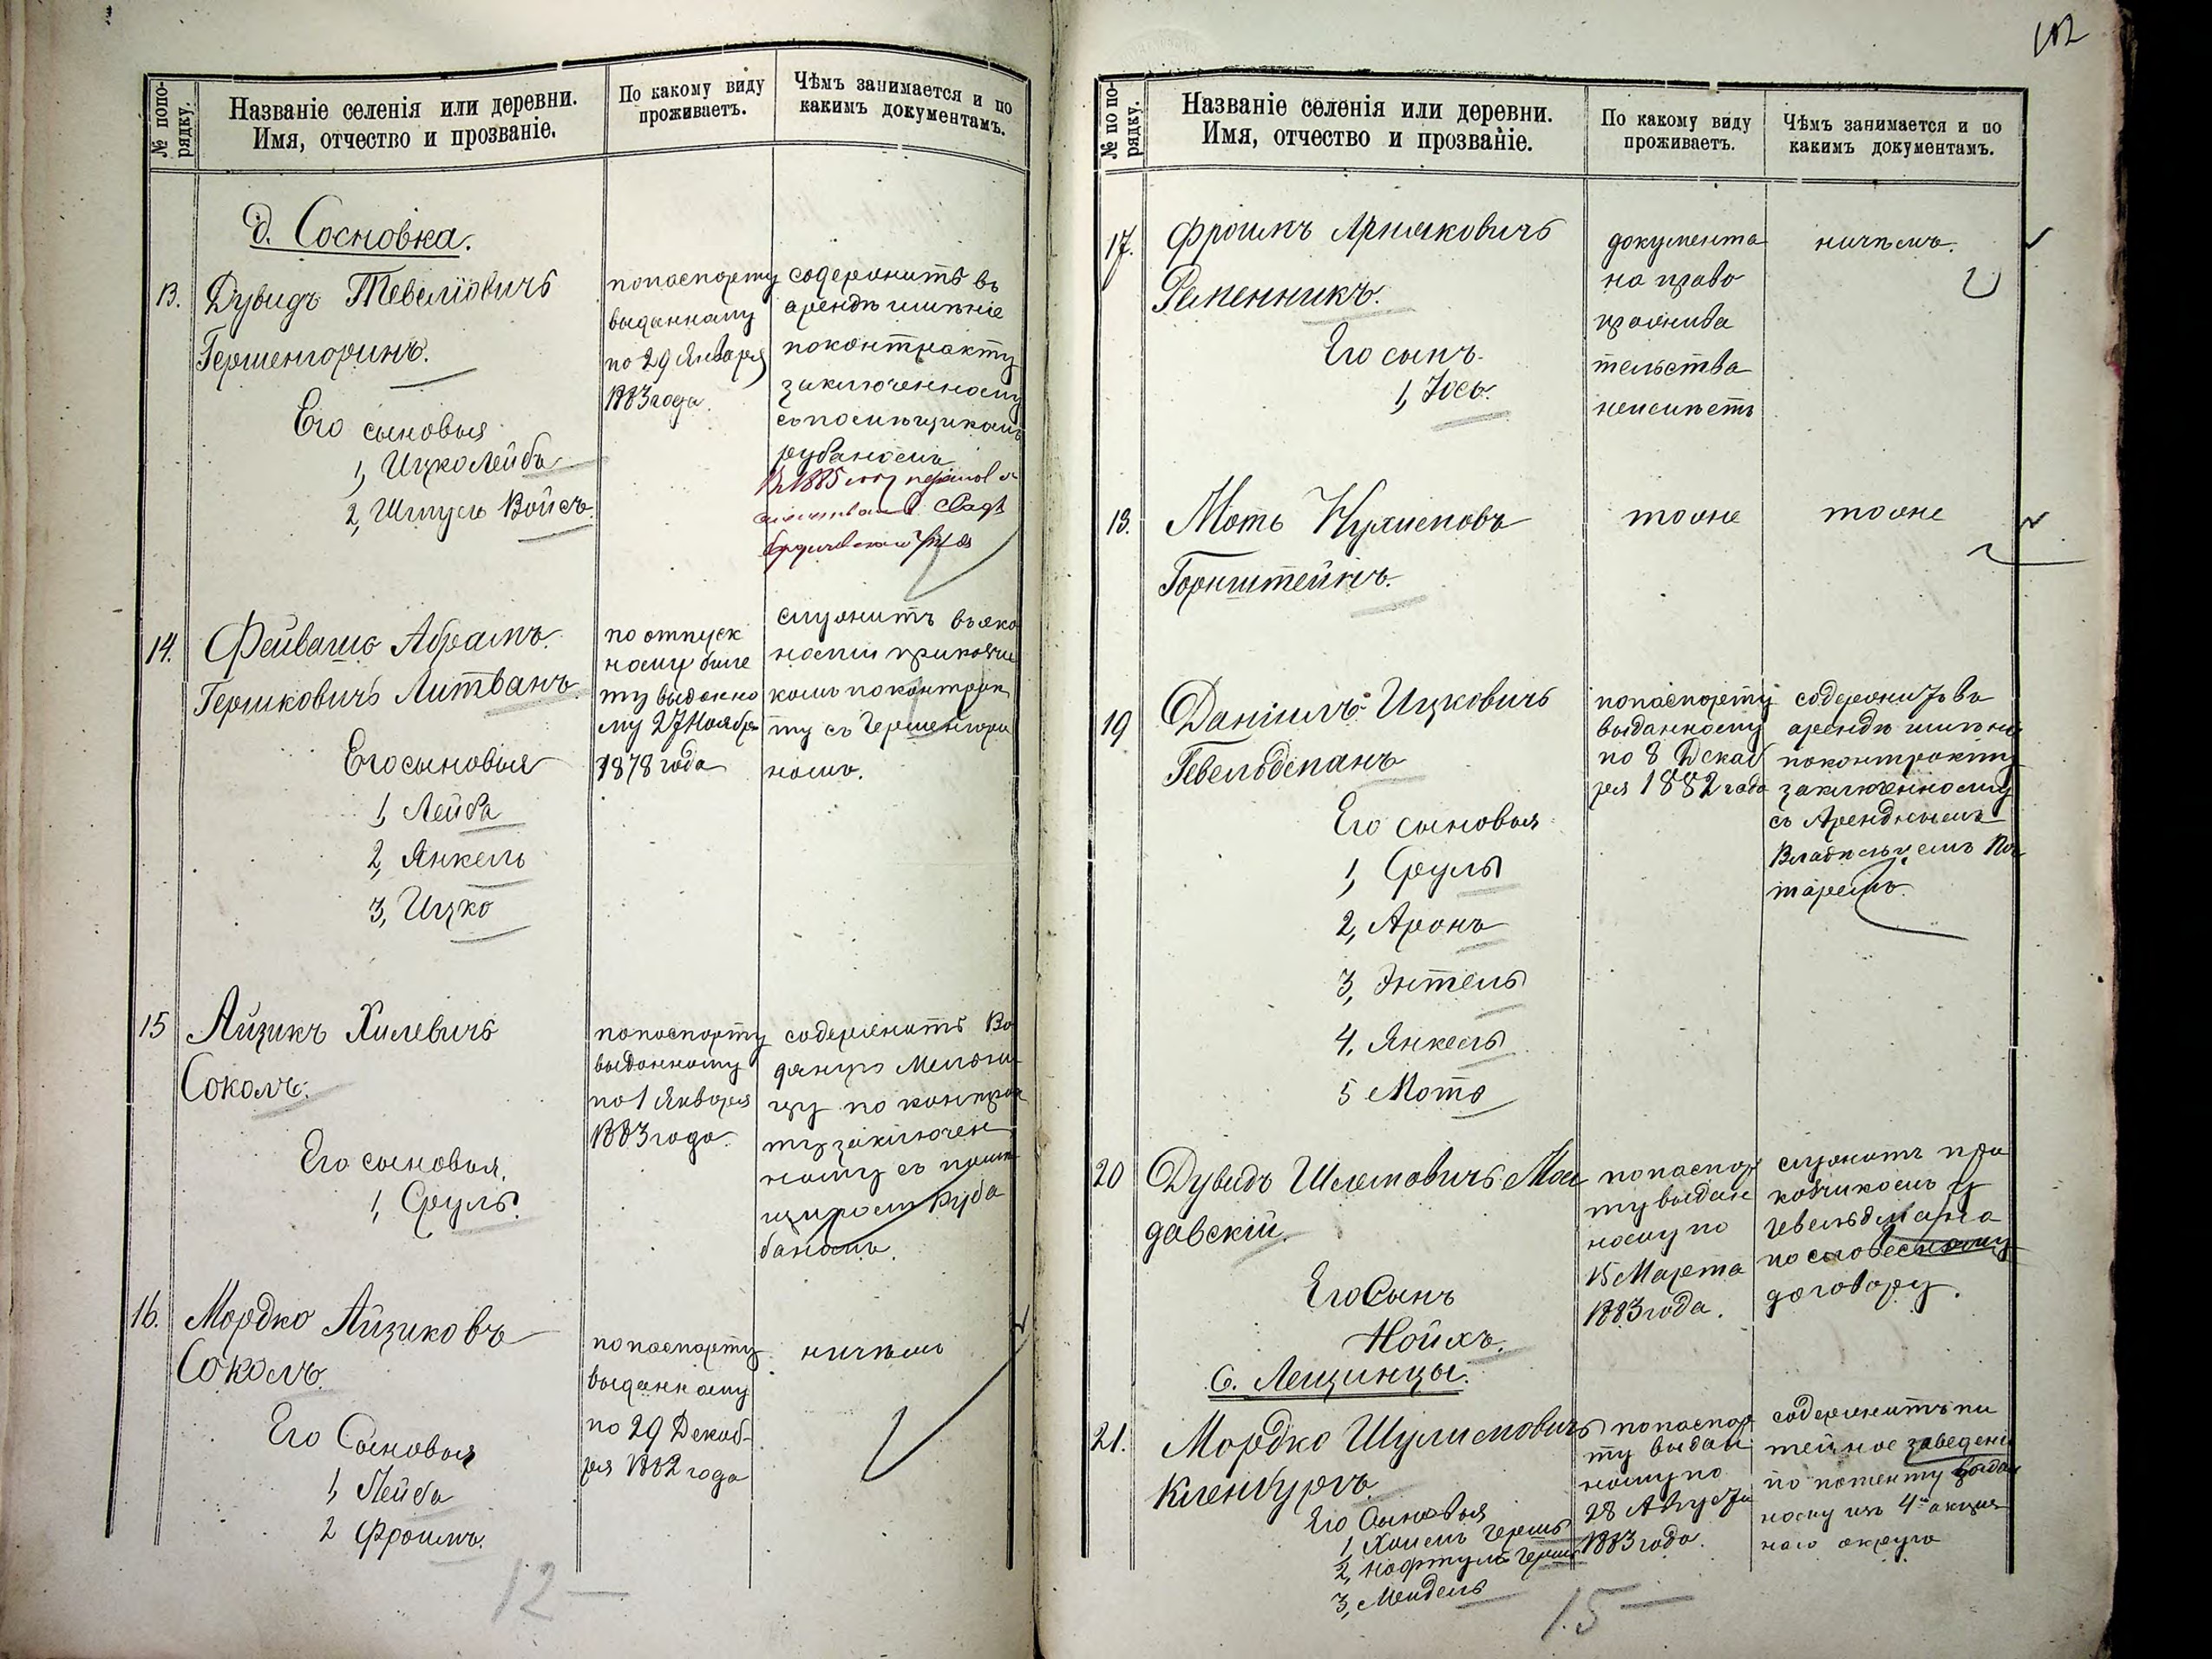 № попо-
рядку.
Названіе селенія или деревни.
Имя, отчество и прозваніе.
По какому виду
проживаетъ.
Чѣмъ занимается и по
какимъ документамъ.
д. Сосновка.
13.
Дувидъ Тевелiовичъ
Гершенгоринъ.
Его сыновья
1, Ицко Лейба
2, Шмуль Войсъ.
по паспорту
выданному
по 29 Января
1883 года.
содержитъ въ
арендѣ имѣніе
по контракту
заключенному
съ помѣщикомъ
рубаномъ
14.
Фейвашъ Абрамъ
Гершковичъ Литванъ
Его сыновья
1, Лейба
2, Янкель
3, Ицко
по отпуск
ному биле
ту выданно
му 27 Ноября
1878 года
служитъ въ эко
номіи прикащи
комъ по контрак
ту съ Гершенгори
номъ.
15
Айзикъ Хилевичъ
Соколъ.
Его сыновья.
1, Сруль.
по паспорту
выданному
по 1 Января
1883 года.
содержитъ Во
дяную Мельни
цу по контрак
ту заключен
ному съ помѣ
щикомъ Руба
баномъ.
16.
Мордко Айзиковъ
Соколъ.
Его Сыновья
1, Лейба
2 Фроимъ.
по паспорту
выданному
по 29 Декаб-
ря 1882 года
ничѣмъ
12 —
102
№ по по-
рядку.
Названіе селенія или деревни.
Имя, отчество и прозваніе.
По какому виду
проживаетъ.
Чѣмъ занимается и по
какимъ документамъ.
17.
Фроимъ
Ременникъ.
Его сынъ.
1, Іось.
документа
на право
прожива
тельства
неимѣетъ
ничѣмъ.
18.
Мотъ Нухимовъ
Горнштейнъ.
тоже
тоже
19
Даніилъ Ицковичъ
Гевельдманъ
Его сыновья
1, Сруль
2, Аронъ
3, Энтель
4. Янкель
5 Мотъ
по паспорту
выданному
по 8 Декаб
ря 1882 года
содержитъ въ
арендѣ имѣніе
по контракту
заключенному
съ Аренднымъ
Владѣльцемъ По
таремъ.
20
Дувидъ Шлемовичъ Мол
давскій.
Его Сынъ
Нойхъ.
по паспор
ту выдан
ному по
15 Марта
1883 года.
служитъ при
кащикомъ у
гевельдмана
по словесному
договору.
С. Лещинцы.
21.
Мордко Шулимовичъ
Кленбургъ
Его Сыновья
1, Хаимъ Гершъ
2, Нафтула Гершъ
3, Мендель
по паспор
ту выдан
ному по
28 Августа
1883 года.
содержитъ пи
тейное заведеніе
по патенту выдан
ному изъ 4го акциз
наго округа
15 —